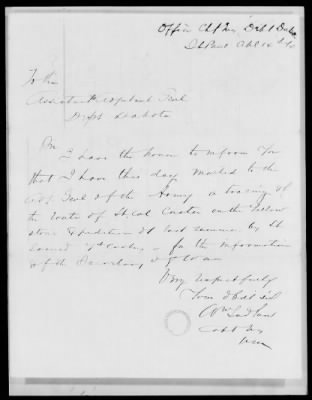 Office Chf Eng Dept Dak
St Paul Apl 14th
To the
Assistant Adjutant Genl
Dept Dakota
I have the honor to inform You
that I have this day Mailed to the
Adjt Genl of the Army a tracing of
the route of Lt. Col Custer on the Yellow
stone Expedition of last summer by Lt
for the Information
of the Secretary of
Very respectfully
Your Obdt
Wm Ludlow
Capt Eng